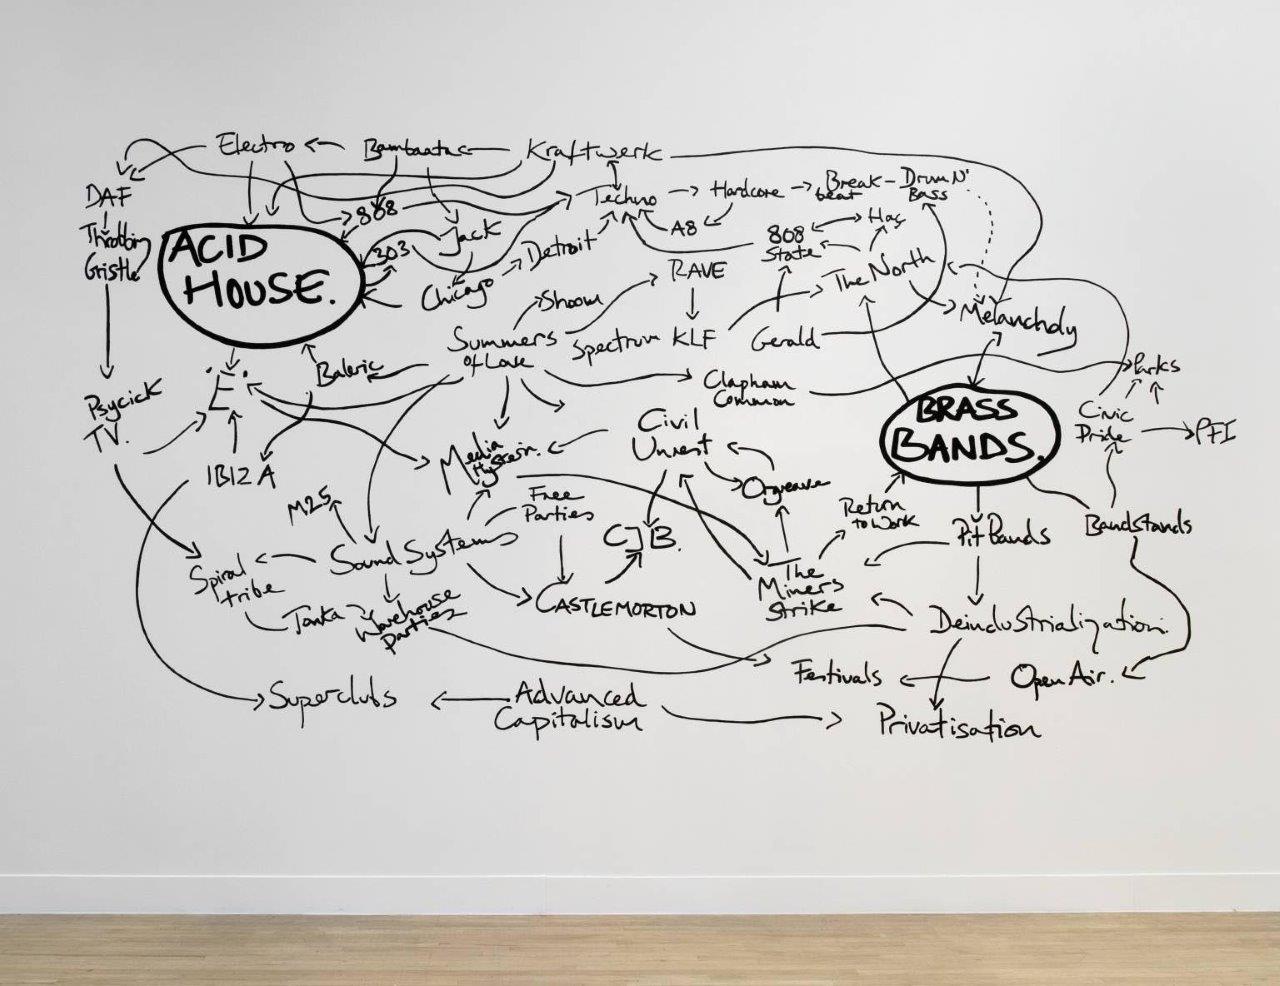 Electro
Bambaata
Kraftwerk
DAF
Throbbin
Gristle
ACID
HOUSE.
808
303
Jack
Chicago
Detroit
Techno
Hardcore
Break-
beat
Drum N'
Bass
A8
808
State
Hac
The North
Melancholy
Shoom
RAVE
Summers
of Love
Spectrum
KLF
Gerald
Baleric
'E'.
Clapham
Common
Parks
Psycick
TV.
IBIZA
Media
Hysteria.
Civil
Unrest
Orgreave
BRASS
BANDS.
Civic
Pride
PFI
M25
Free
Parties
CJB.
Return
to Work
Pit Bands
Bandstands
Spiral
tribe
Sound Systems
Tonka
Warehouse
Parties
CASTLEMORTON
The
Miners
Strike
Deindustrialization.
Festivals
Open Air.
Superclubs
Advanced
Capitalism
Privatisation